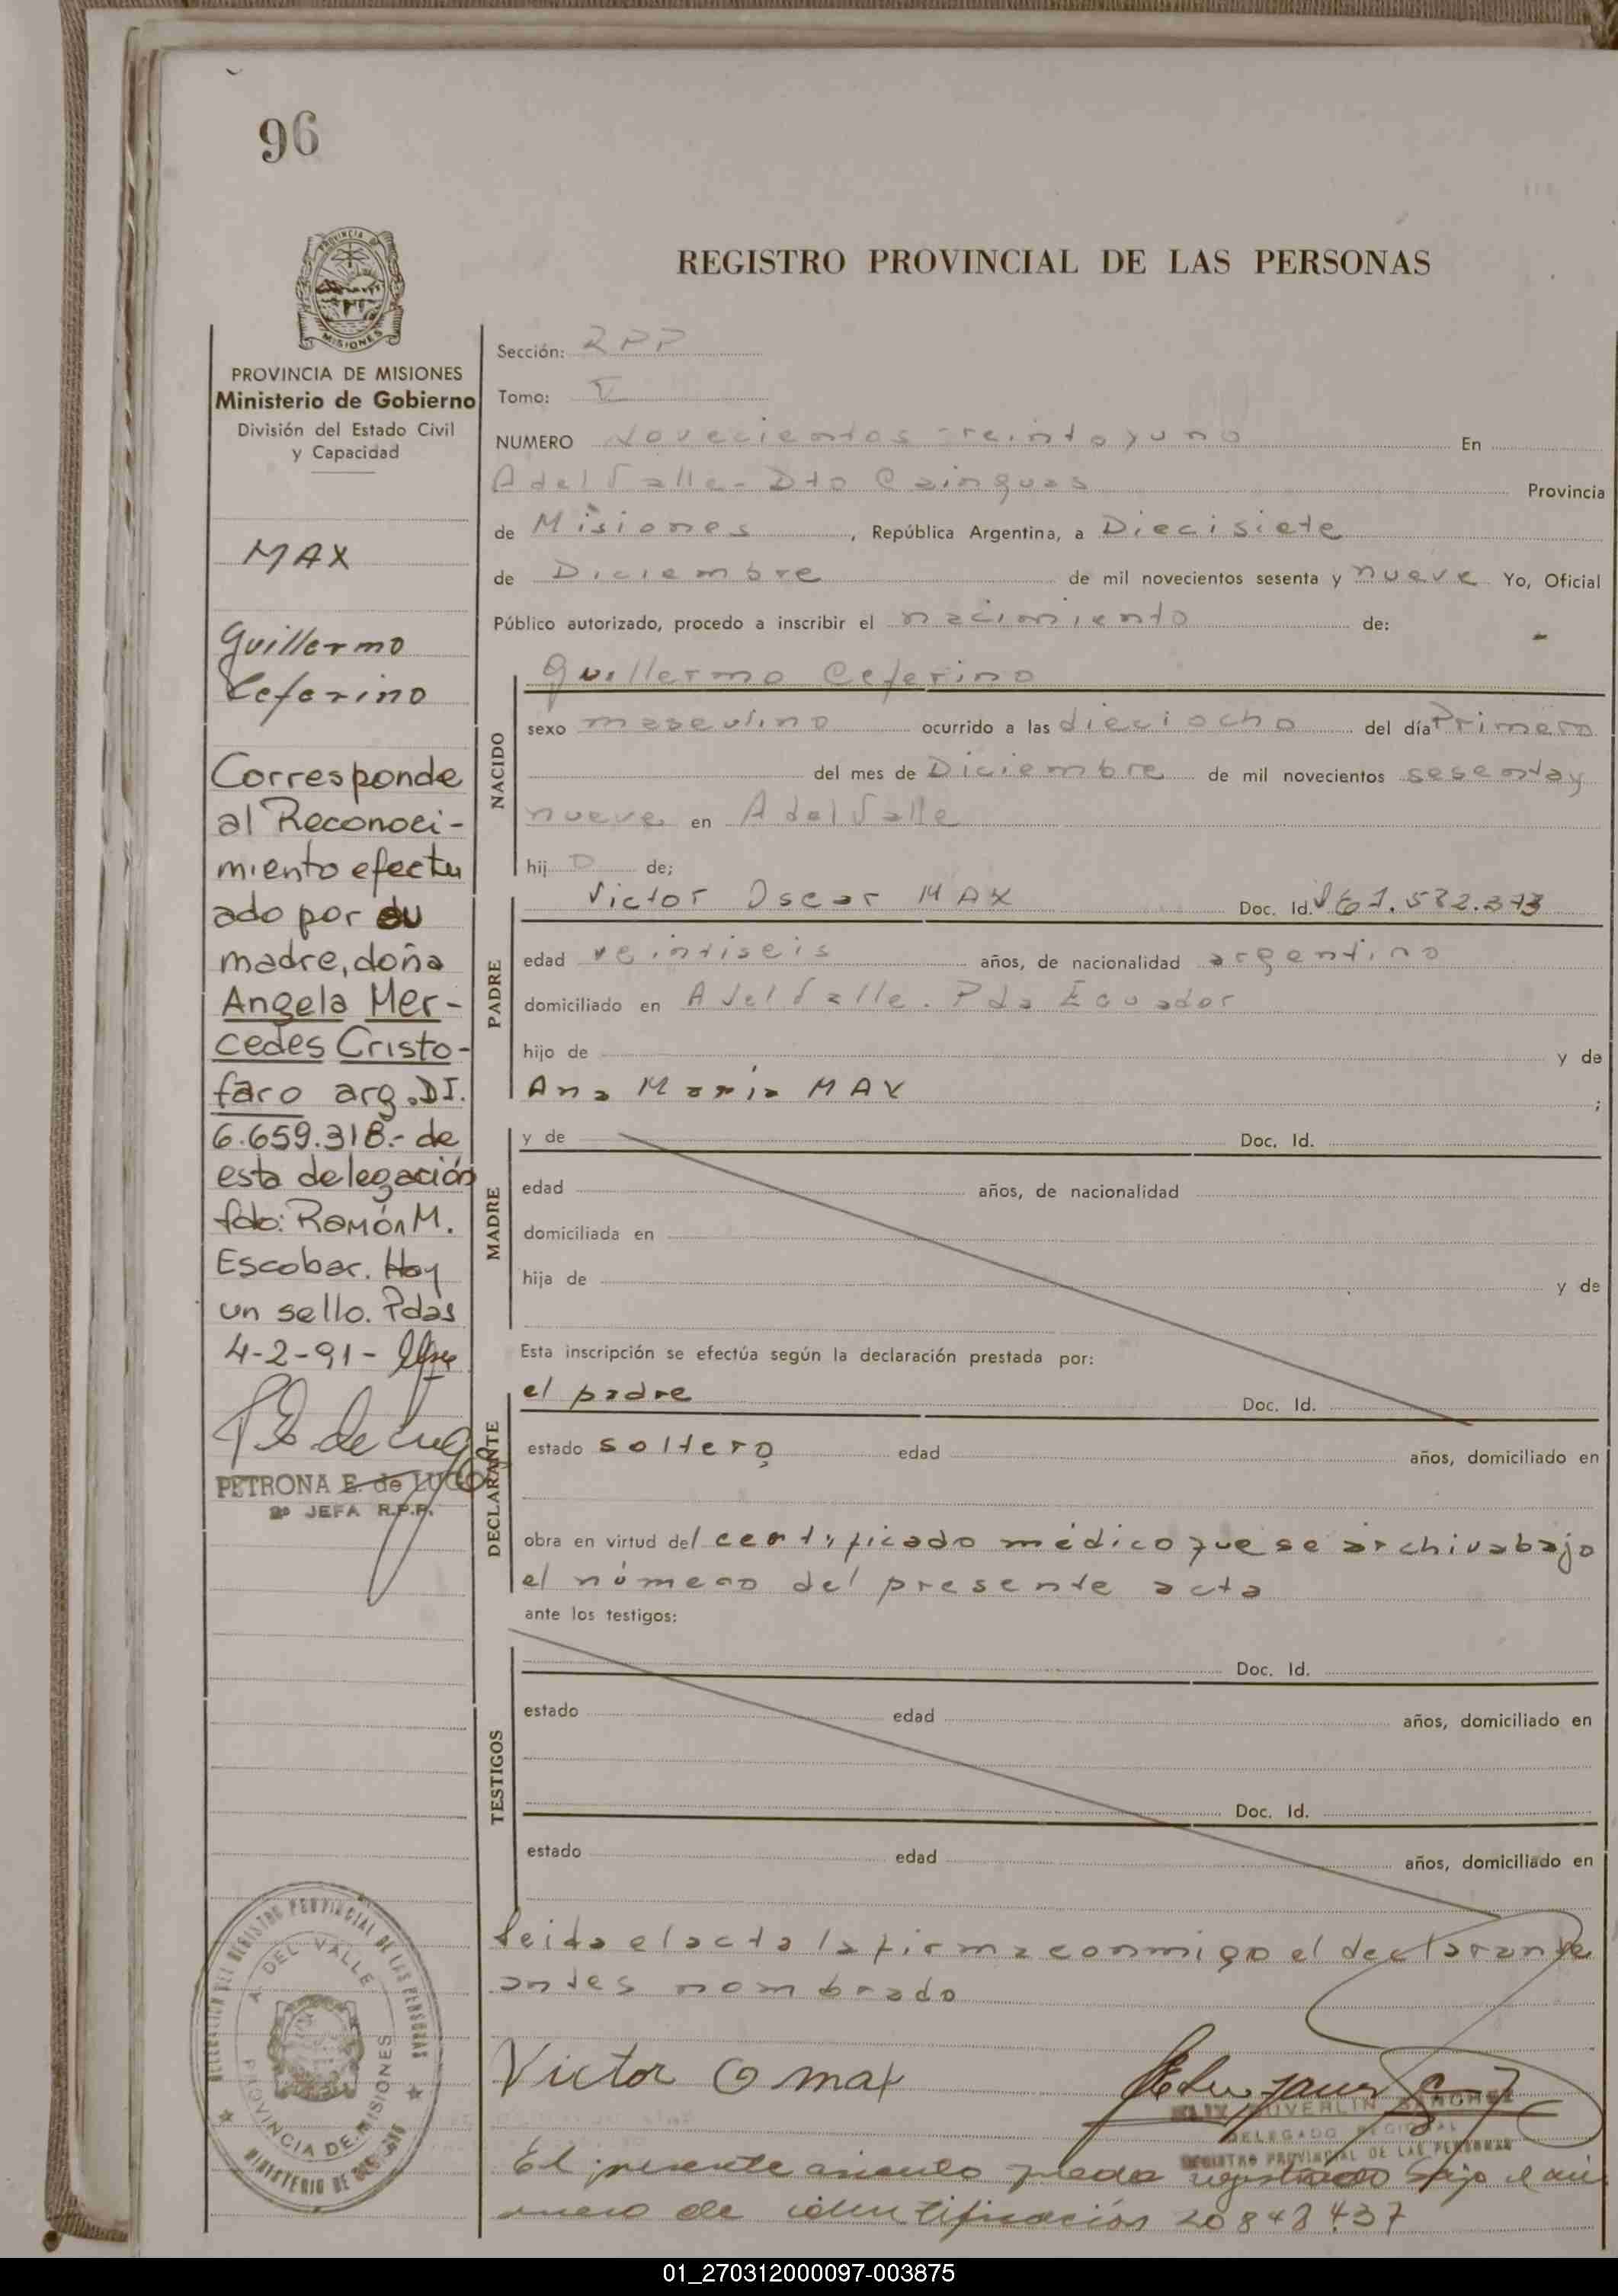 96
PROVINCIA DE
MISIONES
REGISTRO PROVINCIAL DE LAS PERSONAS
PROVINCIA DE MISIONES
Ministerio de Gobierno
División del Estado Civil
y Capacidad
MAX
Guillermo
Ceferino
Corresponde
al Reconoci-
miento efectu
ado por su
madre, doña
Angela Mer-
cedes Cristo-
faro arg. DI.
6.659.318.- de
esta delegación
fdo: Ramón M.
Escobar. Hay
un sello. Pdas
4-2-91-
PETRONA E. de LUGO
2ª JEFA R.P.P.
Sección: RPP
Tomo: I
NUMERO Novecientos treinta y uno En
A del Valle - Dto Cainguas Provincia
de Misiones, República Argentina, a Diecisiete
de Diciembre de mil novecientos sesenta y nueve Yo, Oficial
Público autorizado, procedo a inscribir el nacimiento de:
NACIDO
Guillermo Ceferino
sexo masculino ocurrido a las dieciocho del día Primero
del mes de Diciembre de mil novecientos sesenta y
nueve en A del Valle
hijo de;
PADRE
Victor Oscar MAX Doc. Id.
edad veintiseis años, de nacionalidad argentino
domiciliado en A del Valle. Pda Ecuador
hijo de y de
Ana Maria MAX ;
MADRE
y de Doc. Id.
edad años, de nacionalidad
domiciliada en
hija de y de
Esta inscripción se efectúa según la declaración prestada por:
DECLARANTE
el padre Doc. Id.
estado soltero edad años, domiciliado en
obra en virtud del certificado médico que se archiva bajo
el número del presente acta
ante los testigos:
TESTIGOS
Doc. Id.
estado edad años, domiciliado en
Doc. Id.
estado edad años, domiciliado en
Leida el acta la firma conmigo el declarante
antes nombrado
Victor O Max
SANCHEZ
DELEGADO
REGISTRO PROVINCIAL DE LAS PERSONAS
El presente asiento queda registrado bajo el nú
mero de identificación 20.843.437
DELEGACION DEL REGISTRO PROVINCIAL DE LAS PERSONAS
A DEL VALLE
PROVINCIA DE MISIONES
MINISTERIO DE GOBIERNO
01_270312000097-003875